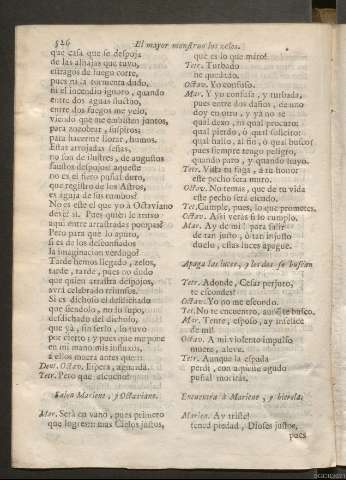 526
El mayor monstruo los zelos.
que casa que se despoja
de las alhajas que tuvo,
estragos de fuego corre,
pues ni la tormenta dudo,
ni el incendio ignoro, quando
entre dos aguas fluctuo,
entre dos fuegos me yelo,
viendo que me embisten juntos,
para zozobrar, suspiros,
para hacerme llorar, humos.
Estas arrojadas señas,
no son de ilustres, de augustos
faustos despojos? aqueste
no es el fiero puñal duro,
que registro de los Astros,
es aguja de sus rumbos?
No es este el que yo à Octaviano
dexè? si. Pues quien le truxo
aqui entre arrastradas pompas?
Pero para què lo apuro,
si es de los desconfiados
la imaginacion verdugo?
Tarde hemos llegado, zelos,
tarde, tarde, pues no dudo
que quien arrastra despojos,
avrà celebrado triunfos.
Si es dichoso el desdichado
que siendolo, no lo supo,
desdichado del dichoso,
que yà, sin serlo, lo tuvo
por cierto; y pues que me pone
en mi mano mis influxos,
à ellos muera antes que
Dent. Octav. Espera, aguarda.
Tetr. Pero què escucho?
Salen Mariene, y Octaviano.
Mar. Serà en vano, pues primero
que logren mas Cielos justos,
què es lo que miro!
Tetr. Turbado
he quedado.
Octav. Yo confuso.
Mar. Y yo confusa, y turbada,
pues entre dos daños, de uno
doy en otro, y yà no sè
qual dexo, ni qual procuro:
qual pierdo, ò qual solicito:
qual hallo, al fin, ò qual busco:
pues siempre tengo peligro,
quando paro, y quando huyo.
Tetr. Viste tu fuga, à tu honor
este pecho serà muro.
Octav. No temas, que de tu vida
este pecho serà escudo.
Tet. Cumple, pues, lo que prometes.
Octav. Assi veràs si lo cumplo.
Mar. Ay de mi! para salir
de tan justo, ò tan injusto
duelo, estas luces apague.
Apaga las luces, y los dos se buscan
Tetr. Adonde, Cesar perjuro,
te escondes?
Octav. Yo no me escondo.
Tet. No te encuentro, aunque te busco.
Mar. Tente, esposo, ay infelice
de mi!
Octav. A mi violento impulso
muere, aleve.
Tetr. Aunque la espada
perdi, con aqueste agudo
puñal moriràs.
Encuentra à Mariene, y hierela.
Marien. Ay triste!
tened piedad, Dioses justos,
pues